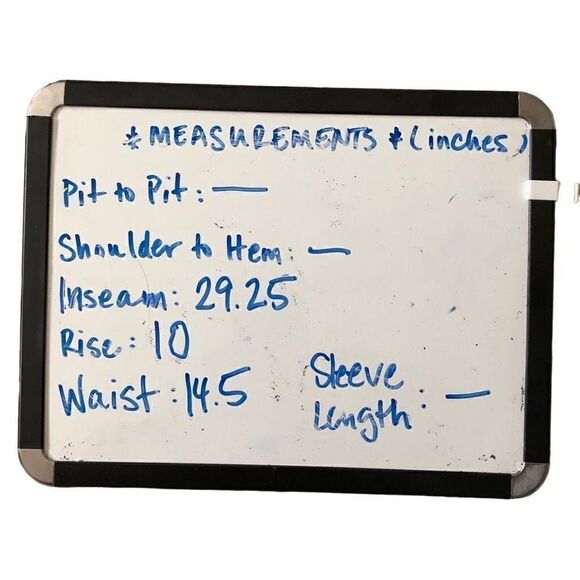 * MEASUREMENTS * (inches)
Pit to Pit: —
Shoulder to Hem: —
Inseam: 29.25
Rise: 10
Waist: 14.5
Sleeve Length: —